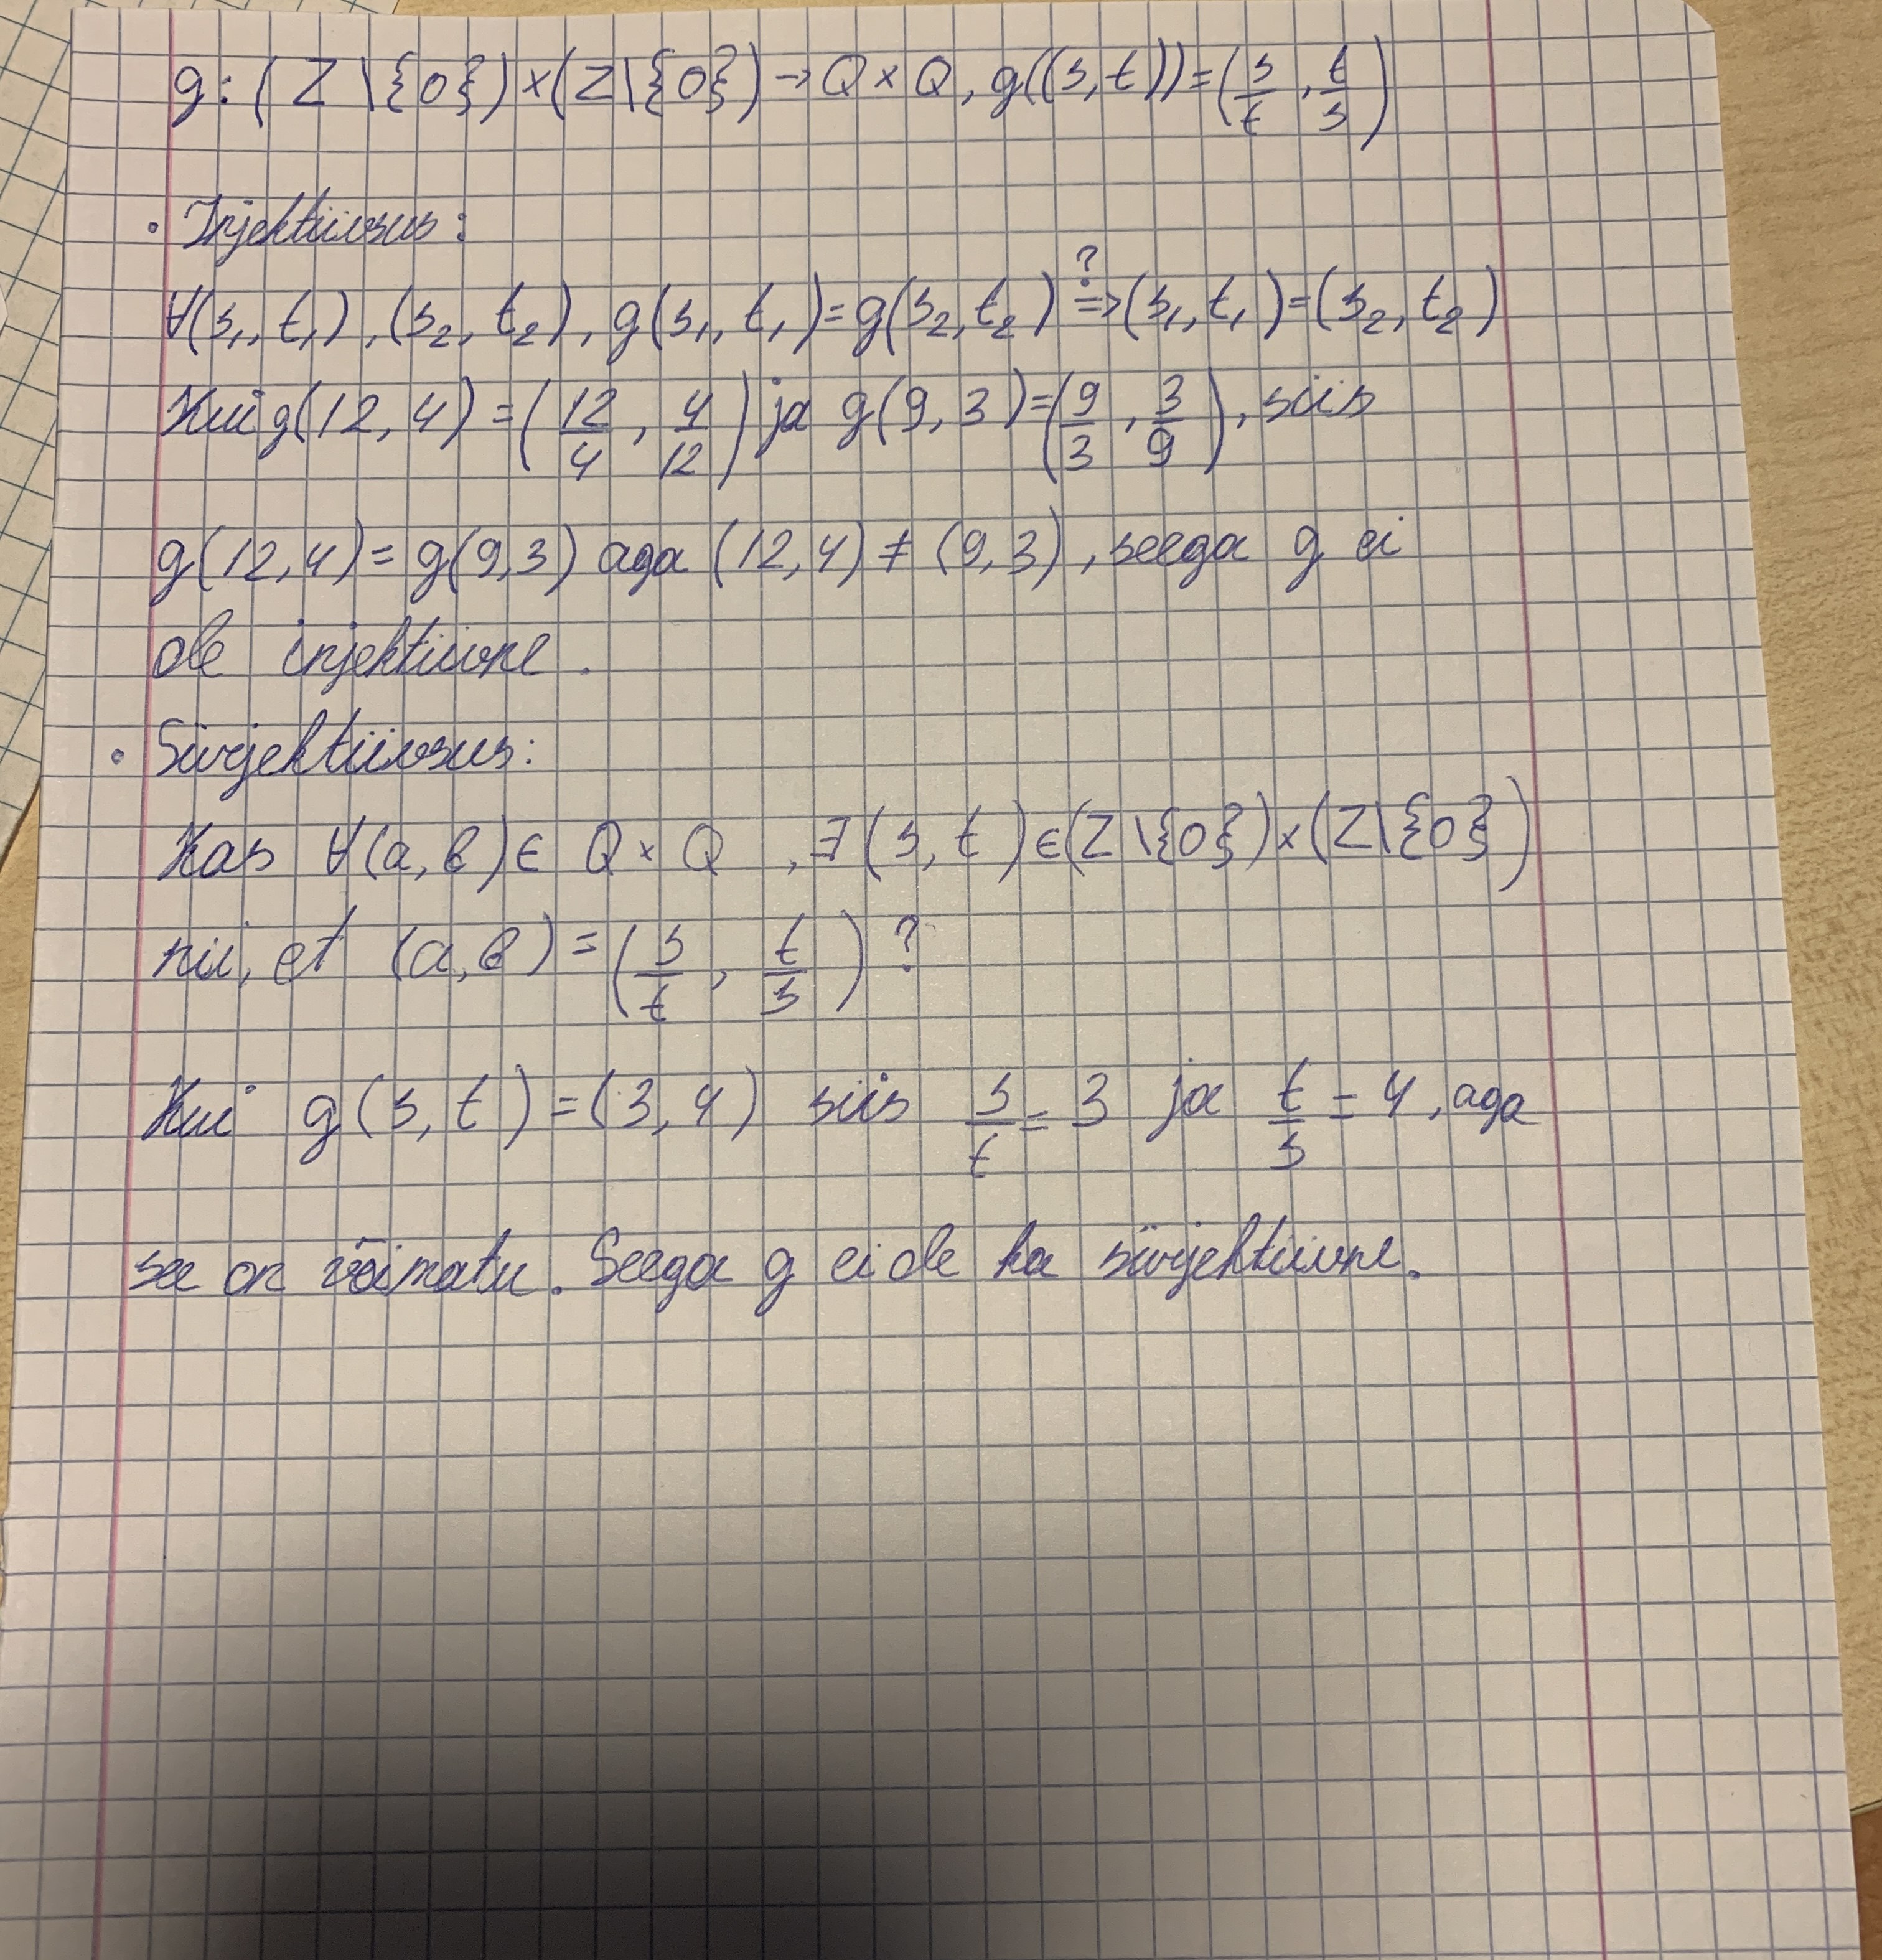 g: (Z\{0})×(Z\{0}) → Q×Q, g((s,t)) = (s/t, t/s)
• Injektiivsus:
∀(s₁, t₁), (s₂, t₂), g(s₁, t₁) = g(s₂, t₂) ?⇒ (s₁, t₁) = (s₂, t₂)
Kui g(12, 4) = (12/4, 4/12) ja g(9, 3) = (9/3, 3/9), siis
g(12,4) = g(9,3) aga (12,4) ≠ (9,3), seega g ei
ole injektiivne.
• Sürjektiivsus:
Kas ∀(a, b) ∈ Q×Q, ∃(s, t) ∈ (Z\{0})×(Z\{0})
nii, et (a, b) = (s/t, t/s)?
Kui g(s, t) = (3, 4) siis s/t = 3 ja t/s = 4, aga
see on võimatu. Seega g ei ole ka sürjektiivne.